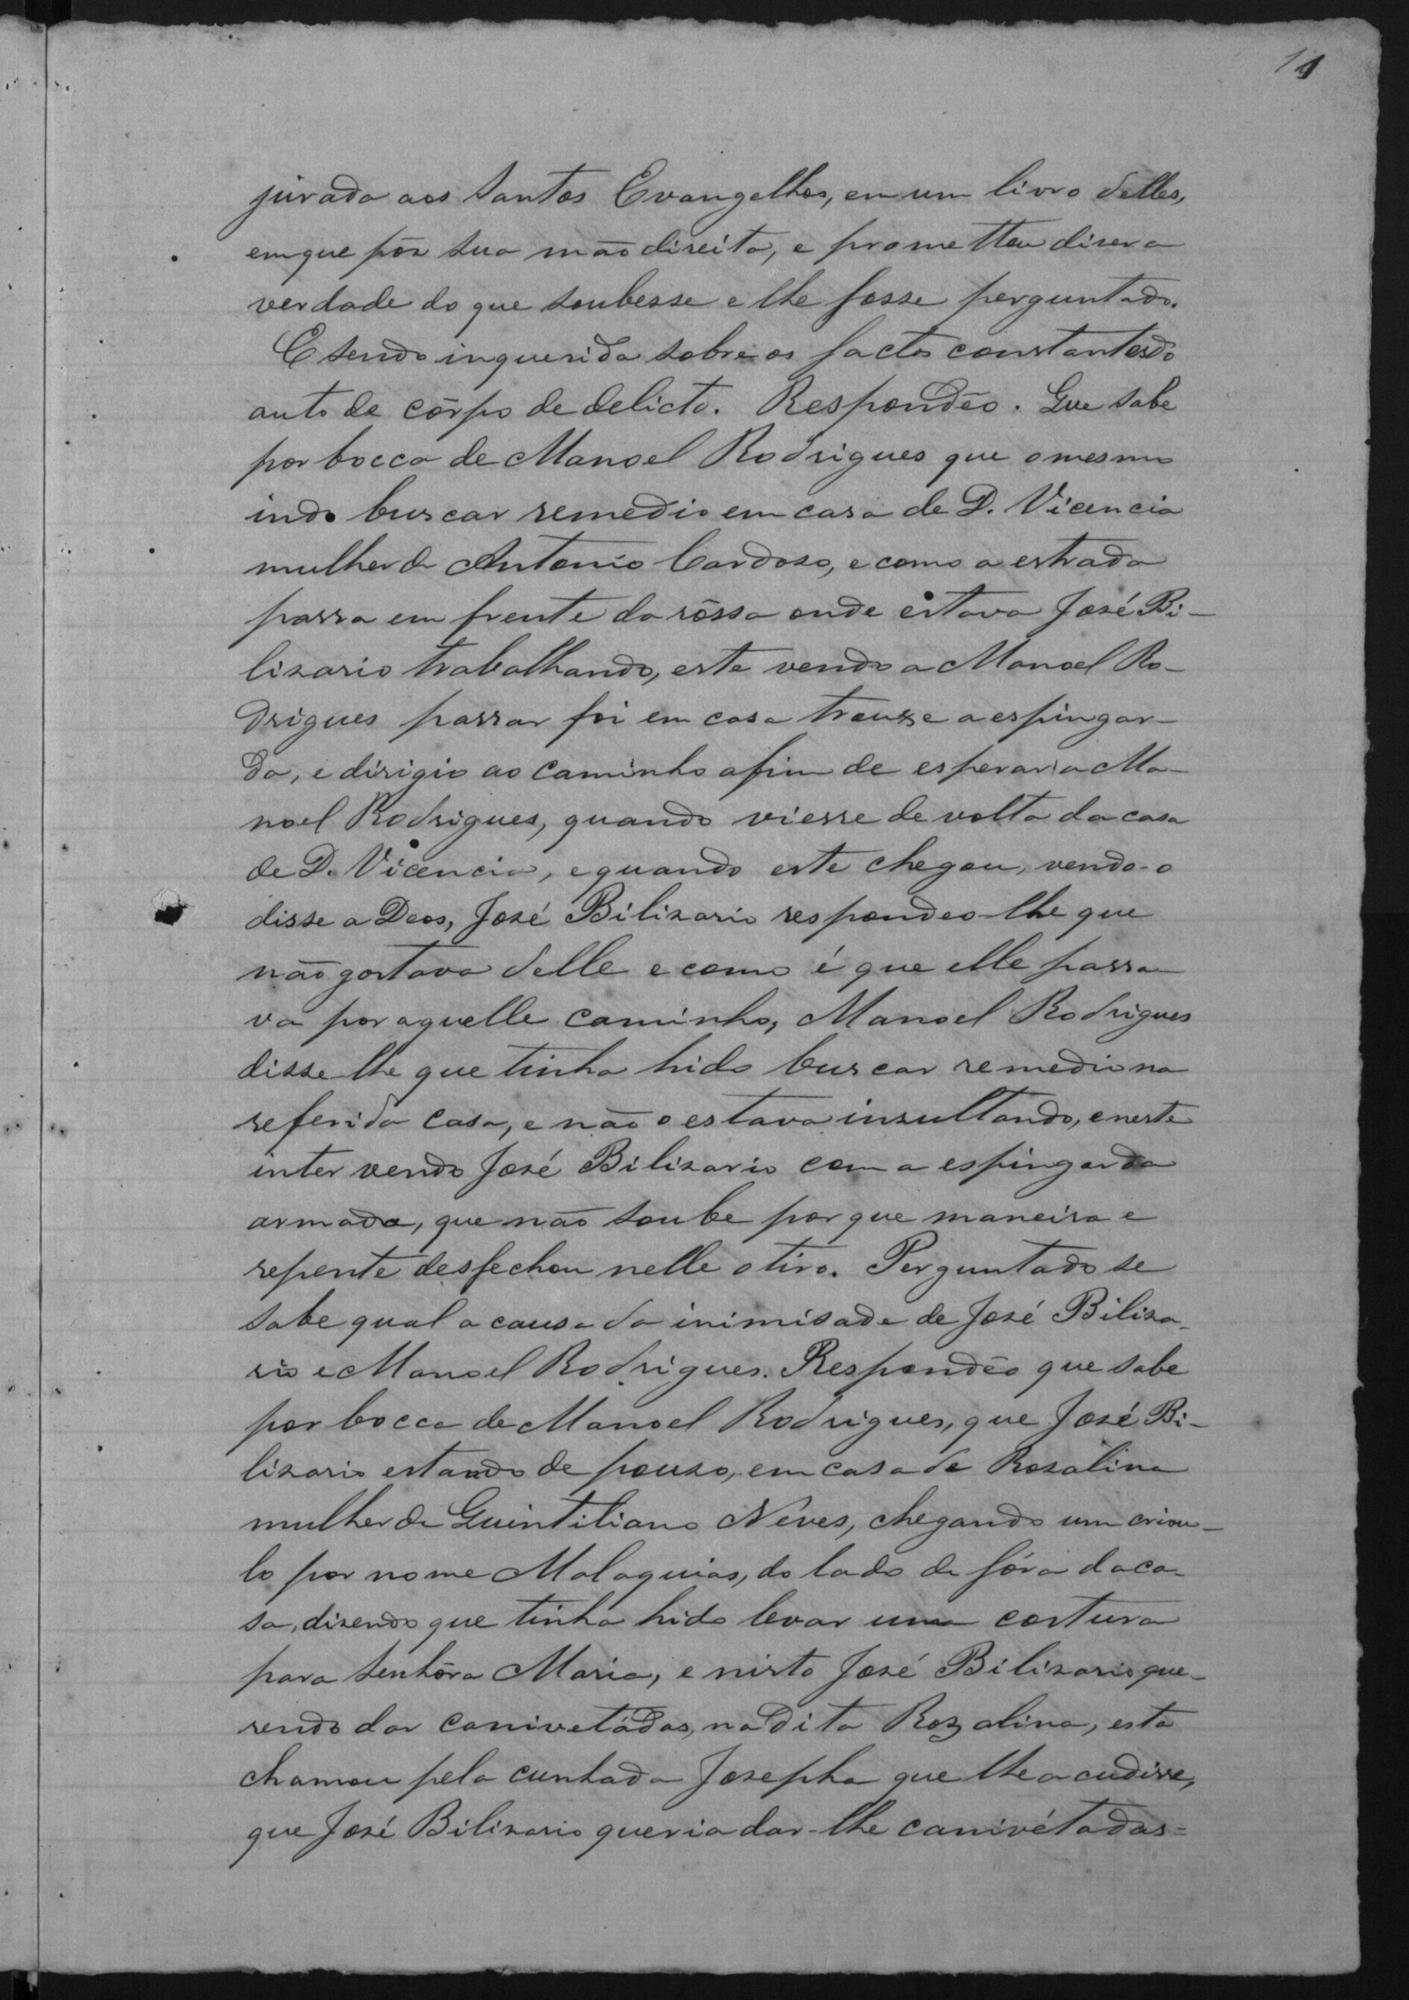 11
jurada aos Santos Evangelhos, em um livro delles,
em que pôz sua mão direita, e prometteu diser a
verdade do que soubesse e lhe fosse perguntado.
E sendo inquerida sobre os factos constantes do
auto de côrpo de delicto. Respondêo. Que sabe
por bocca de Manoel Rodrigues que o mesmo
indo buscar remedio em casa de D. Vicencia
mulher de Antonio Cardoso, e como a estrada
passa em frente da rôssa onde estava José Bi-
lizario trabalhando, este vendo a Manoel Ro-
drigues passar foi em casa trouxe a espingar-
da, e dirigio ao caminho afim de esperar a Ma-
noel Rodrigues, quando viesse de volta da casa
de D. Vicencia, e quando este chegou, vendo-o
disse a Deos, José Bilizario respondeo-lhe que
não gostava delle e como é que elle passa-
va por aquelle caminho, Manoel Rodrigues
disse-lhe que tinha hido buscar remedio na
referida casa, e não o estava insultando, e neste
inter vendo José Bilizario com a espingarda
armada, que não soube por que maneira e
repente desfechou nelle o tiro. Perguntado se
sabe qual a causa da inimisade de José Biliza-
rio e Manoel Rodrigues. Respondêo que sabe
por bocca de Manoel Rodrigues, que José Bi-
lizario estando de pouzo, em casa de Rosalina
mulher de Quintiliano Neves, chegando um criou-
lo por nome Malaquias, do lado de fóra da ca-
sa, disendo que tinha hido levar uma costura
para Senhôra Maria, e nisto José Bilizario que-
rendo dar canivetádas, na dita Rozalina, esta
chamou pela cunhada Josepha que lhe acudisse,
que José Bilizario queria dar-lhe canivétadas=